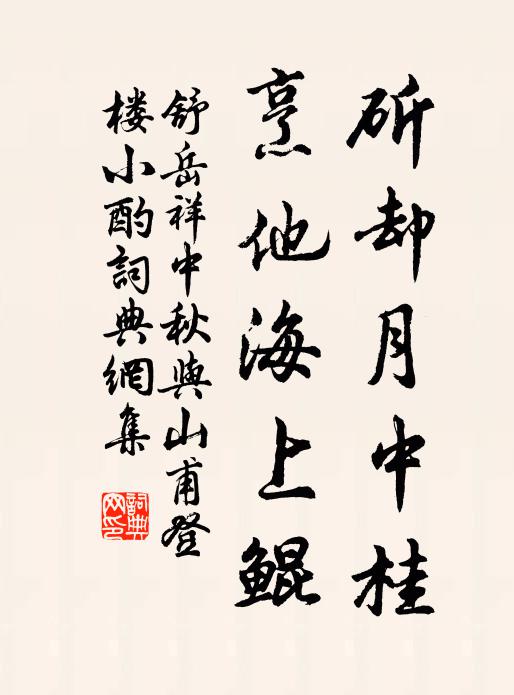 斫却月中桂
烹他海上鲲
舒岳祥中秋與山甫登
楼小酌詞典網集
詞典
网印